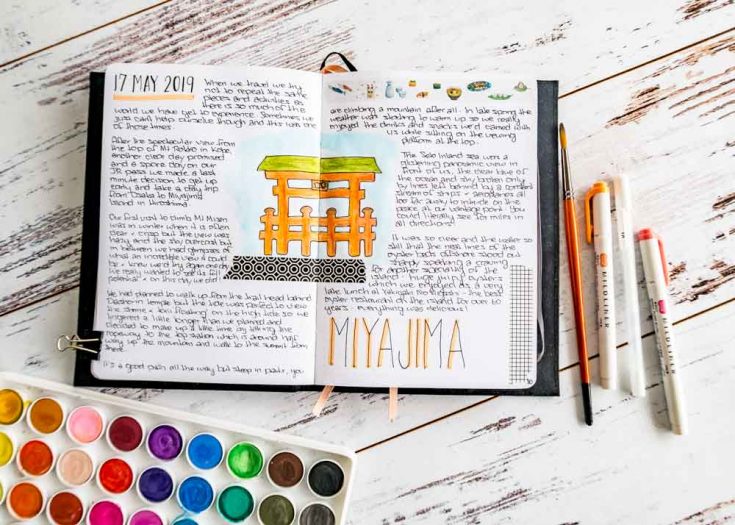 17 MAY 2019
When we travel we try
not to repeat the same
places and activities as
there is so much of the
world we have yet to experience. Sometimes we
just can't help ourselves though and this was one
of those times.
After the spectacular view from
the top of Mt Rokko in Kobe,
another clear day promised
and a spare day on our
JR pass we made a last
minute decision to get up
early and take a day trip
from Osaka to Miyajima
Island in Hiroshima
Our first visit to climb Mt Misen
was in winter when it is often
clear & crisp but the view was
hazy and the sky overcast but
in between we had glimpses of
what an incredible view it could
be & knew we'd try again one day
we really wanted to see its full
potential & on this day we did!
We had planned to walk up from the trail head behind
Daishoin temple but the tide was perfect to view
the torii & floating on the high tide so we
lingered a little longer than we planned and
decided to make up a little time by taking the
ropeway to the top station which is around half
way up the mountain and walk to the summit from
there.
It's a good path all the way but steep in parts, you
are climbing a mountain after all. In late spring the
weather was starting to warm up so we really
enjoyed the drinks and snacks we'd carried with
us while sitting on the viewing
platform at the top.
The Seto Inland sea were a
glistening panoramic view in
front of us, the clear blue of
the ocean and sky broken only
by lines left behind by a constant
stream of ships & aeroplanes all
too far away to intrude on the
peace at our vantage point. You
could literally see for miles in
all directions!
It was so clear and the water so
still that the neat lines of the
oyster beds offshore stood out
sharply sparking a craving
for another speciality of the
island - huge, juicy oysters
which we enjoyed as a very
late lunch at
oyster restaurant on the island for over 60
years - everything was delicious!
MIYAJIMA
MILDLINER